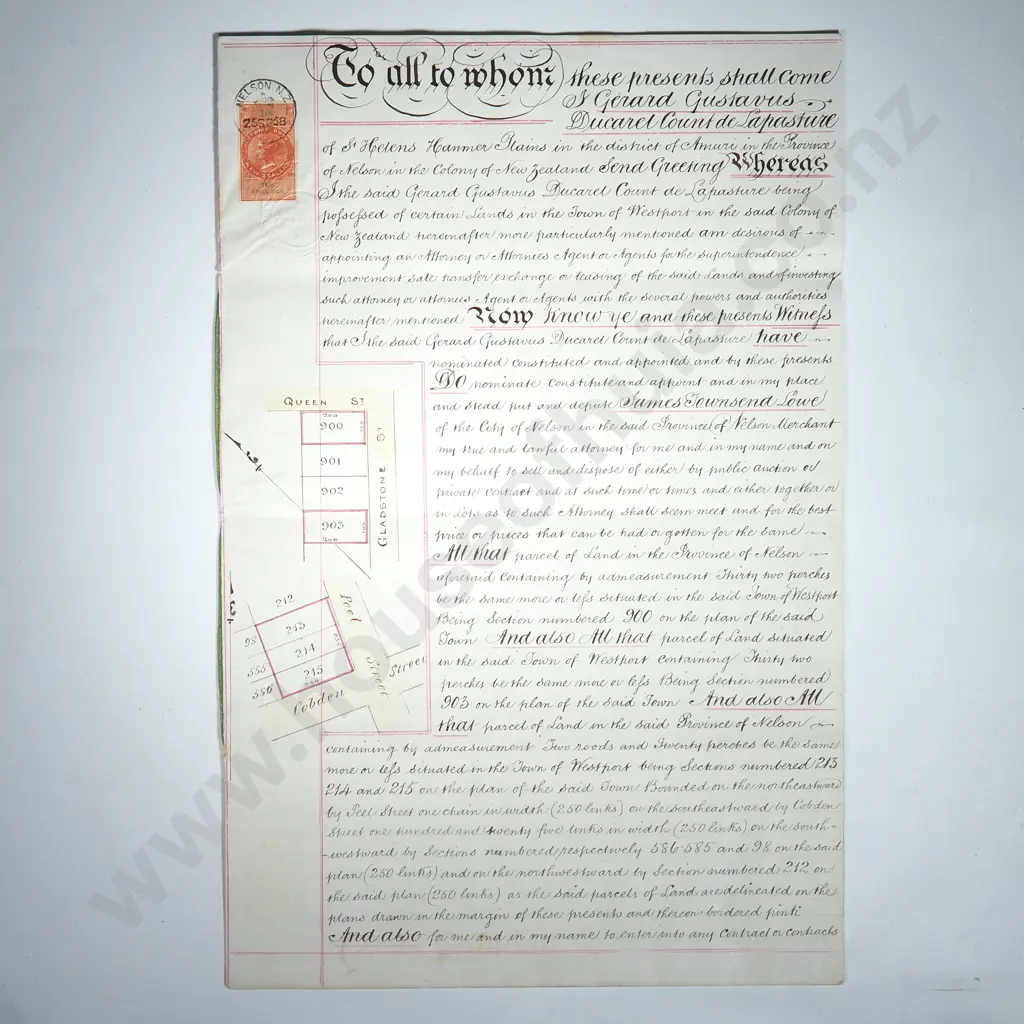 To all to whom these presents shall come
I Gerard Gustavus
Ducarel Count de Lapasture
of St Helens Hanmer Plains in the district of Amuri in the Province
of Nelson in the Colony of New Zealand Send Greeting Whereas
I the said Gerard Gustavus Ducarel Count de Lapasture being
possessed of certain Lands in the Town of Westport in the said Colony of
New Zealand hereinafter more particularly mentioned am desirous of
appointing an Attorney or Attornies Agent or Agents for the superintendence
improvement sale transfer exchange or leasing of the said Lands and of investing
such attorney or attornies Agent or Agents with the several powers and authorities
hereinafter mentioned Now Know ye and these presents Witness
that I the said Gerard Gustavus Ducarel Count de Lapasture have
nominated constituted and appointed and by these presents
Do nominate constitute and appoint and in my place
and stead put and depute James Townsend Lowe
of the City of Nelson in the said Province of Nelson Merchant
my true and lawful attorney for me and in my name and on
my behalf to sell and dispose of either by public auction or
private contract and at such time or times and either together or
in Lots as to such Attorney shall seem meet and for the best
price or prices that can be had or gotten for the same
All that parcel of Land in the Province of Nelson
aforesaid containing by admeasurement Thirty two perches
be the same more or less situated in the said Town of Westport
Being Section numbered 900 on the plan of the said
Town And also All that parcel of Land situated
in the said Town of Westport containing Thirty two
perches be the same more or less Being Section numbered
903 on the plan of the said Town And also All
that parcel of Land in the said Province of Nelson
containing by admeasurement Two roods and Twenty perches be the same
more or less situated in the Town of Westport being Sections numbered 213
214 and 215 on the plan of the said Town Bounded on the northeastward
by Peel Street one chain in width (250 links) on the southeastward by Cobden
Street one hundred and twenty five links in width (250 links) on the south-
-westward by Sections numbered respectively 586 585 and 98 on the said
plan (250 links) and on the northwestward by Section numbered 212 on
the said plan (250 links) as the said parcels of Land are delineated on the
plans drawn in the margin of these presents and thereon bordered pink
And also for me and in my name to enter into any contract or contracts
NELSON N.Z
QUEEN ST
200
900
901
902
903
200
GLADSTONE ST
212
213
214
215
98
585
586
Peel Street
Cobden Street
www.houseofhulic.co.nz